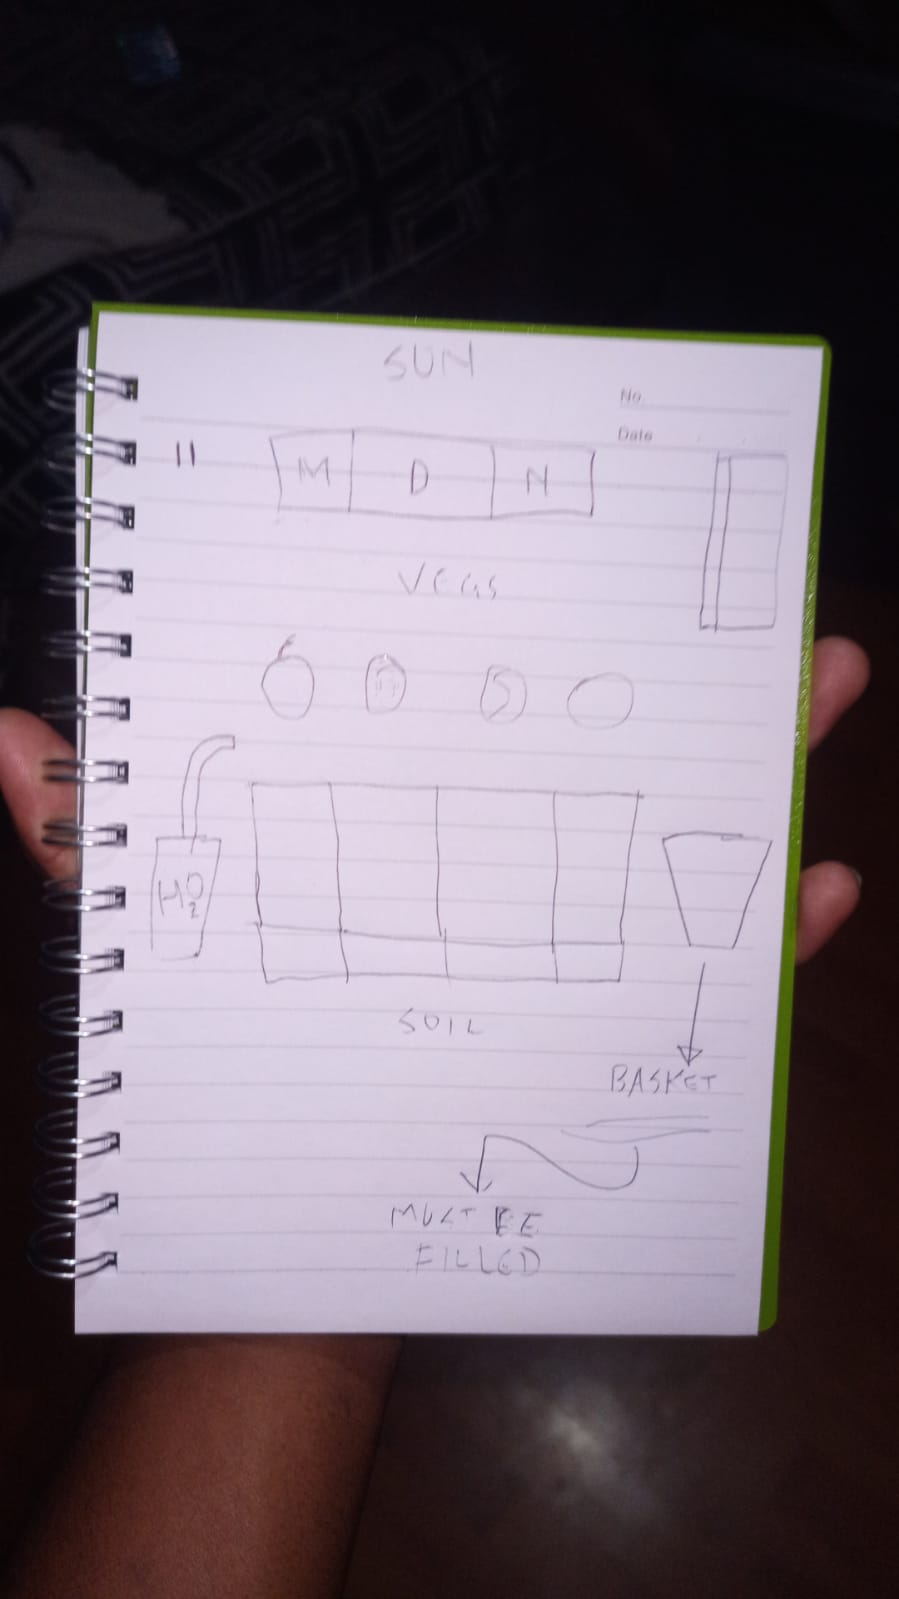 SUN
No.
Date
M D N
VEGS
H2O
SOIL
BASKET
MUST BE
FILLED